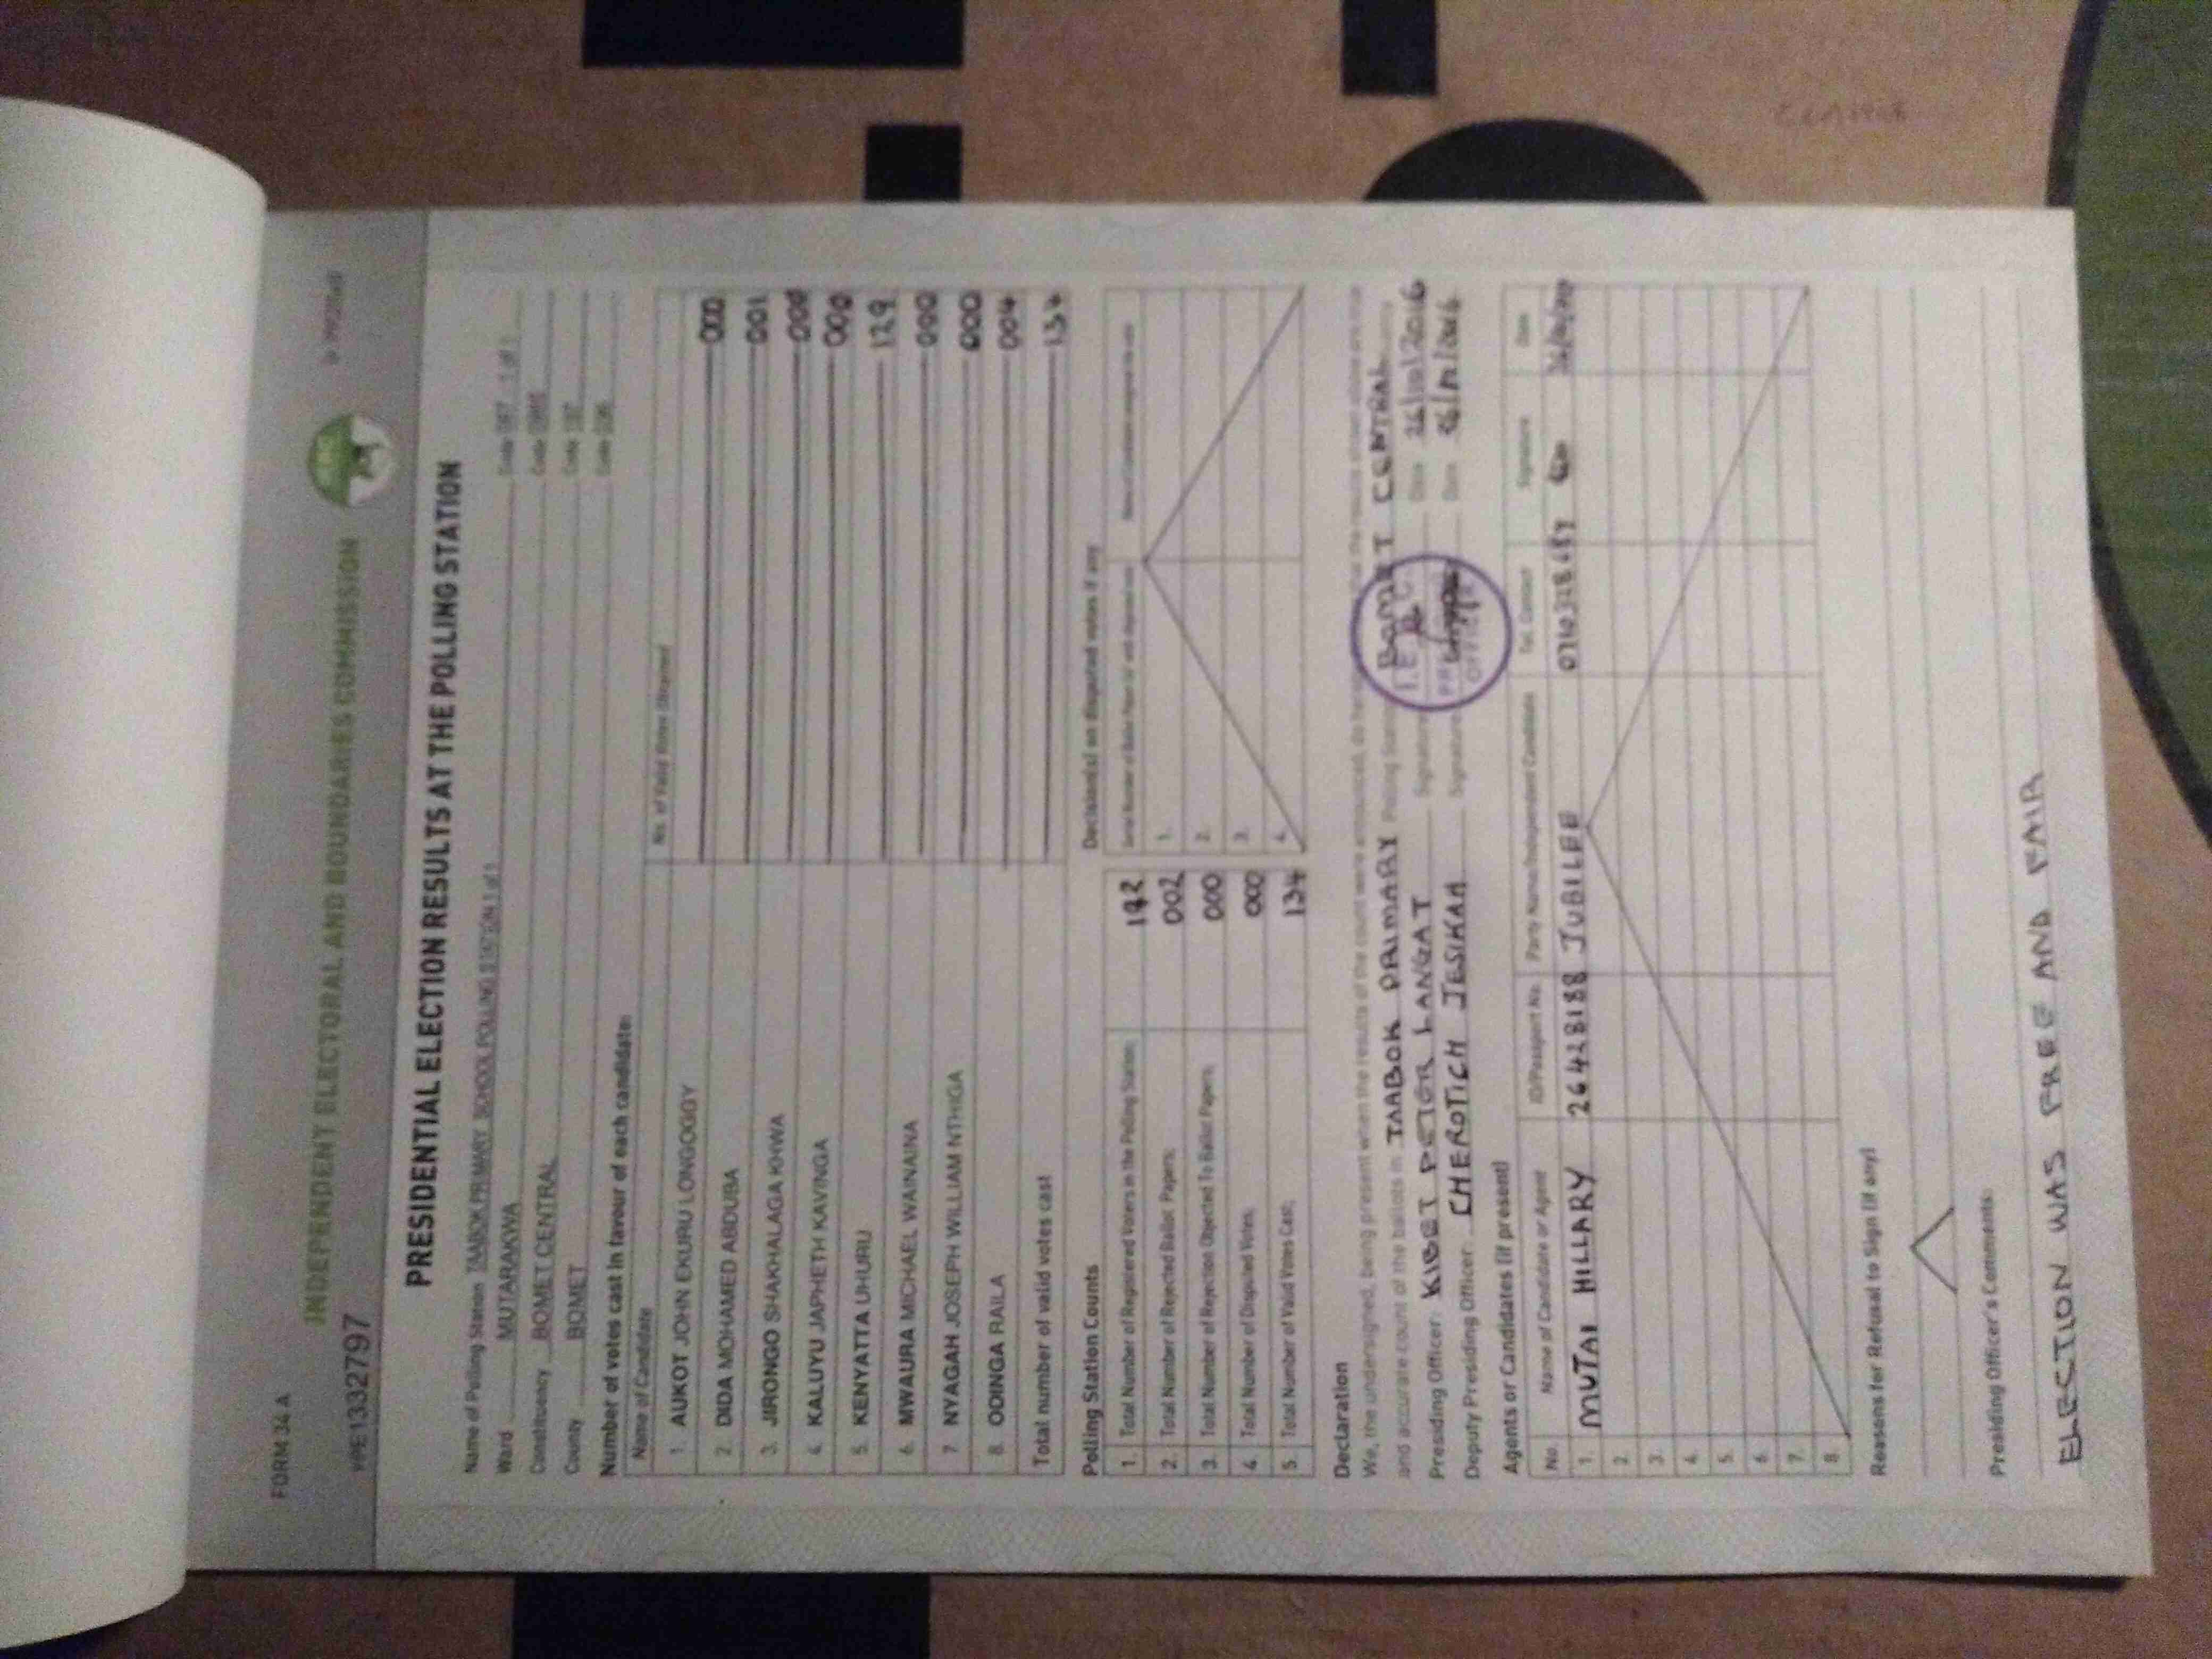 FORM 34 A
INDEPENDENT ELECTORAL AND BOUNDARIES COMMISSION
PRESIDENTIAL ELECTION RESULTS AT THE POLLING STATION
Name of Polling Station TAABOK PRIMARY SCHOOL POLLING STATION 1 of 1 Code 1 of 1
Ward MUTARAKWA Code
Constituency BOMET CENTRAL Code
County BOMET Code
Number of votes cast in favour of each candidate:
Name of Candidate No. of Valid Votes Obtained
1. AUKOT JOHN EKURU LONGOGGY 000
2. DIDA MOHAMED ABDUBA 001
3. JIRONGO SHAKHALAGA KHWA 000
4. KALUYU JAPHETH KAVINGA 000
5. KENYATTA UHURU 129
6. MWAURA MICHAEL WAINAINA 000
7. NYAGAH JOSEPH WILLIAM NTHIGA 000
8. ODINGA RAILA 004
Total number of valid votes cast 134
Polling Station Counts
1. Total Number of Registered Voters in the Polling Station;
2. Total Number of Rejected Ballot Papers; 002
3. Total Number of Rejection Objected To Ballot Papers; 000
4. Total Number of Disputed Votes; 000
5. Total Number of Valid Votes Cast; 134
Decision(s) on disputed votes if any
1.
2.
3.
4.
Declaration
We, the undersigned, being present when the results of the count were announced, do
and accurate count of the ballots in TAABOK PRIMARY Polling Station BOMET CENTRAL
Presiding Officer: KIBET PETER LANGAT Signature Date 26/10/2016
Deputy Presiding Officer: CHEROTICH JESIKAH Signature Date
Agents or Candidates (if present)
No. Name of Candidate or Agent ID/Passport No. Party Name/Independent Candidate Tel. Contact Signature Date
1. MUTAI HILLARY 26428188 JUBILEE
2.
3.
4.
5.
6.
7.
8.
Reasons for Refusal to Sign (if any)
Presiding Officer's Comments:
ELECTION WAS FREE AND FAIR